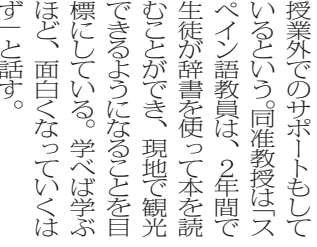 授業外でのサポートもして
いるという。同准教授は「ス
ペイン語教員は、2年間で
生徒が辞書を使って本を読
むことができ、現地で観光
できるようになることを目
標にしている。学べば学ぶ
ほど、面白くなっていくは
ず」と話す。